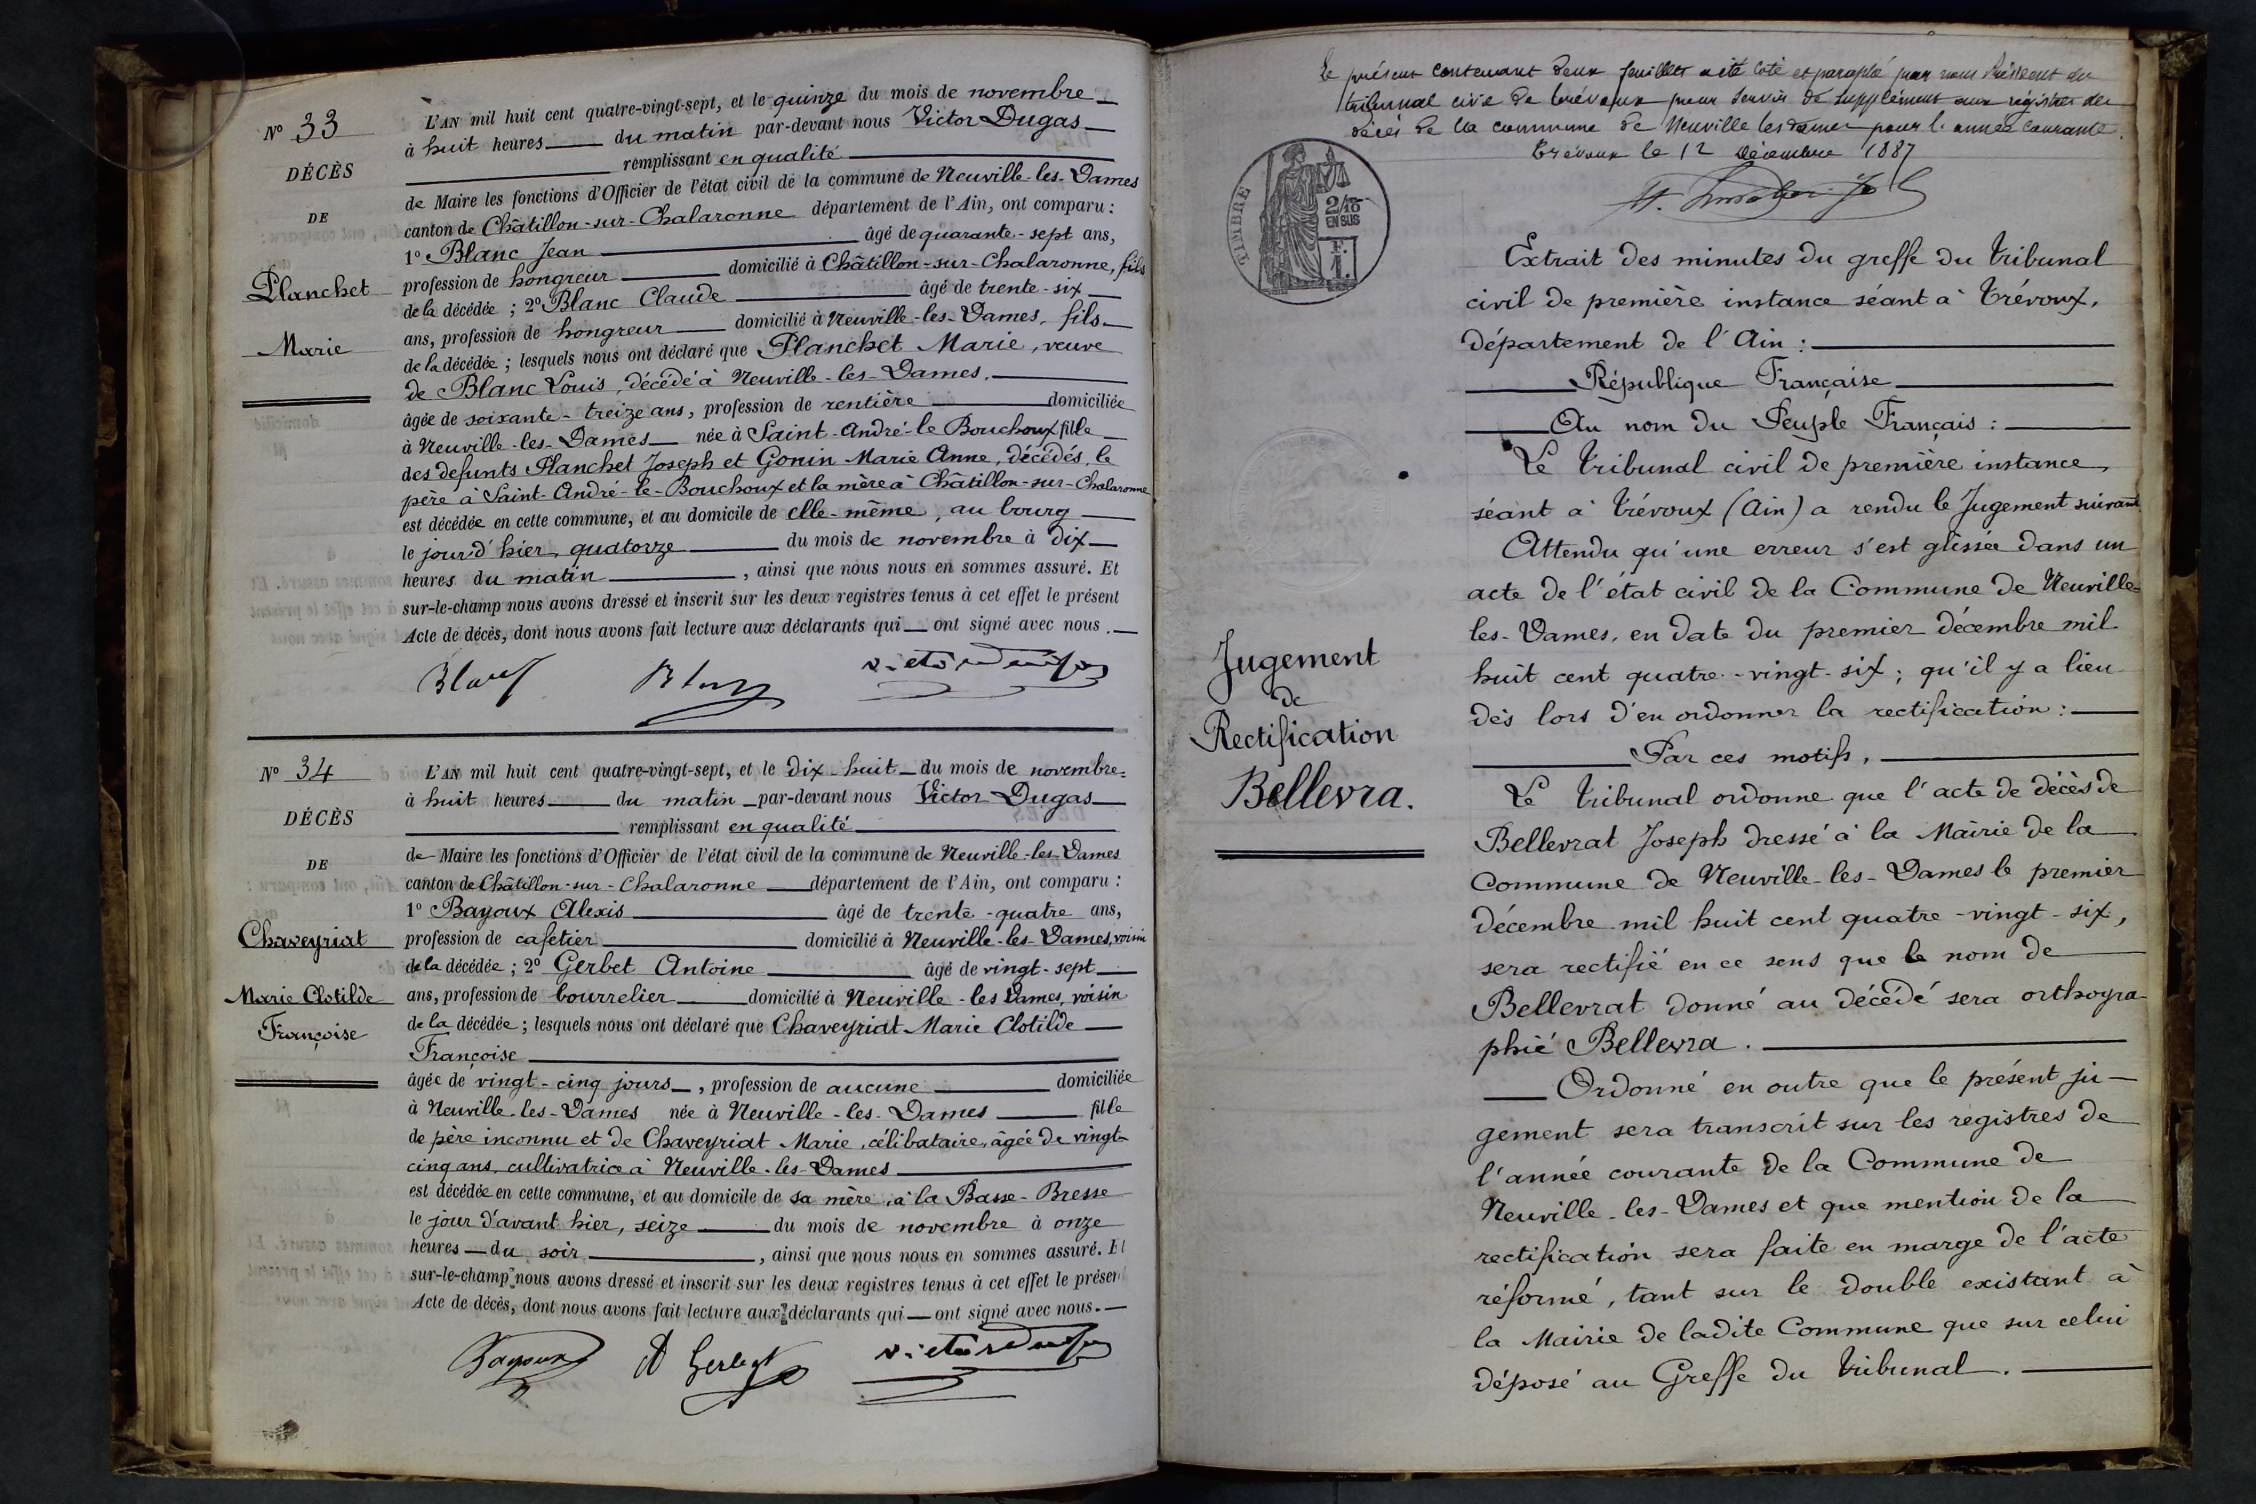 Nº 33
DÉCÈS
DE
Planchet
Marie
L'AN mil huit cent quatre-vingt-sept, et le quinze du mois de novembre
à huit heures du matin par-devant nous Victor Dugas
remplissant en qualité
de Maire les fonctions d'Officier de l'état civil de la commune de Neuville-les-Dames
canton de Châtillon-sur-Chalaronne département de l'Ain, ont comparu :
1º Blanc Jean âgé de quarante-sept ans,
profession de hongreur domicilié à Châtillon-sur-Chalaronne, fils
de la décédée ; 2º Blanc Claude âgé de trente-six
ans, profession de hongreur domicilié à Neuville-les-Dames, fils
de la décédée ; lesquels nous ont déclaré que Planchet Marie, veuve
de Blanc Louis, décédé à Neuville-les-Dames.
âgée de soixante-treize ans, profession de rentière domiciliée
à Neuville-les-Dames née à Saint-André-le Bouchoux fille
des defunts Planchet Joseph et Gonin Marie Anne, décédés, le
père à Saint-André-le-Bouchoux et la mère à Châtillon-sur-Chalaronne
est décédée en cette commune, et au domicile de elle-même, au bourg
le jour d'hier, quatorze du mois de novembre à dix
heures du matin, ainsi que nous nous en sommes assuré. Et
sur-le-champ nous avons dressé et inscrit sur les deux registres tenus à cet effet le présent
Acte de décès, dont nous avons fait lecture aux déclarants qui ont signé avec nous.
Blanc Blanc Victor Dugas
Nº 34
DÉCÈS
DE
Chaveyriat
Marie Clotilde
Françoise
L'AN mil huit cent quatre-vingt-sept, et le dix-huit du mois de novembre
à huit heures du matin par-devant nous Victor Dugas
remplissant en qualité
de Maire les fonctions d'Officier de l'état civil de la commune de Neuville-les-Dames
canton de Châtillon-sur-Chalaronne département de l'Ain, ont comparu :
1º Bayoux Alexis âgé de trente-quatre ans,
profession de cafetier domicilié à Neuville-les-Dames, voisin
de la décédée ; 2º Gerbet Antoine âgé de vingt-sept
ans, profession de bourrelier domicilié à Neuville-les Dames, voisin
de la décédée ; lesquels nous ont déclaré que Chaveyriat Marie Clotilde
Françoise
âgée de vingt-cinq jours, profession de aucune domiciliée
à Neuville-les-Dames née à Neuville-les-Dames fille
de père inconnu et de Chaveyriat Marie, célibataire, âgée de vingt-
cinq ans, cultivatrice à Neuville-les-Dames
est décédée en cette commune, et au domicile de sa mère, à la Basse-Bresse
le jour d'avant hier, seize du mois de novembre à onze
heures du soir, ainsi que nous nous en sommes assuré. Et
sur-le-champ nous avons dressé et inscrit sur les deux registres tenus à cet effet le présent
Acte de décès, dont nous avons fait lecture aux déclarants qui ont signé avec nous.
Bayoux A Gerbet Victor Dugas
Le présent contenant deux feuillets a été coté et paraphé par nous Président du
tribunal civil de Trévoux pour servir de supplément aux registres des
décès de la commune de Neuville les dames pour l'année courante.
Trévoux le 12 Décembre 1887
TIMBRE
2/10
EN SUS
F.
1.
Extrait des minutes du greffe du Tribunal
civil de première instance séant à Trévoux,
département de l'Ain :
République Française
Au nom du Peuple Français :
Le Tribunal civil de première instance,
séant à Trévoux (Ain) a rendu le Jugement suivant
Attendu qu'une erreur s'est glissée dans un
acte de l'état civil de la Commune de Neuville-
les-Dames, en date du premier décembre mil
huit cent quatre-vingt-six ; qu'il y a lieu
dès lors d'en ordonner la rectification :
Par ces motifs,
Jugement
de
Rectification
Bellevra.
Le Tribunal ordonne que l'acte de décès de
Bellevrat Joseph dressé à la Mairie de la
Commune de Neuville-les-Dames le premier
décembre mil huit cent quatre-vingt-six,
sera rectifié en ce sens que le nom de
Bellevrat donné au décédé sera orthogra-
phié Bellevra.
Ordonné en outre que le présent ju-
gement sera transcrit sur les registres de
l'année courante de la Commune de
Neuville-les-Dames et que mention de la
rectification sera faite en marge de l'acte
réformé, tant sur le double existant à
la Mairie de ladite Commune que sur celui
déposé au Greffe du Tribunal.